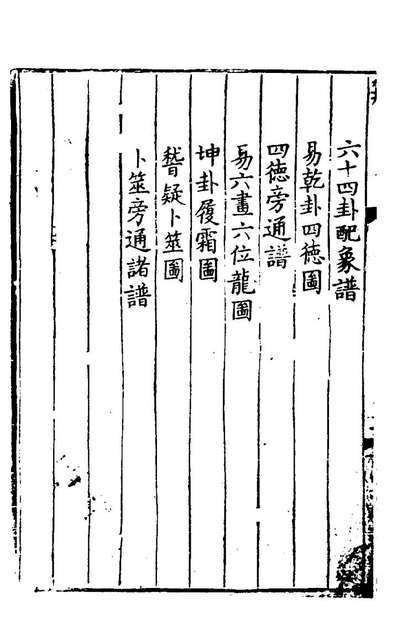 六十四卦配象譜
易乾卦四德圖
四德旁通譜
易六畫六位龍圖
坤卦履霜圖
嵇疑卜筮圖
卜筮旁通諸譜